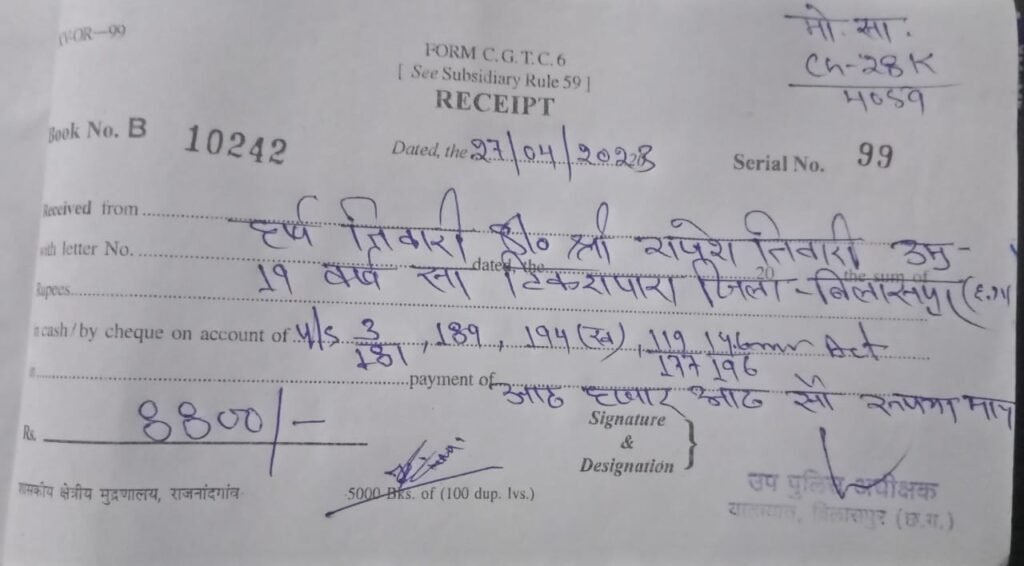 OR-99
मो. सा.
CG-28K
4059
FORM C.G.T.C. 6
[ See Subsidiary Rule 59 ]
RECEIPT
Book No. B 10242
Dated, the 27/04/2023
Serial No. 99
Received from हर्ष तिवारी S/० श्री राजेश तिवारी उम्र-
with letter No. dated, the 20 the sum of
19 वर्ष सा टिकरापारा जिला-बिलासपुर (छ.ग
Rupees
in cash/by cheque on account of u/s 3/181, 189, 194(ख), 119/177 146/196 mv Act
payment of आठ हजार आठ सौ रूपया मात्र
Rs. 8800/-
Signature
&
Designation
शासकीय क्षेत्रीय मुद्रणालय, राजनांदगांव
5000 Bks. of (100 dup. lvs.)
उप पुलिस अधीक्षक
यातायात, बिलासपुर (छ.ग.)